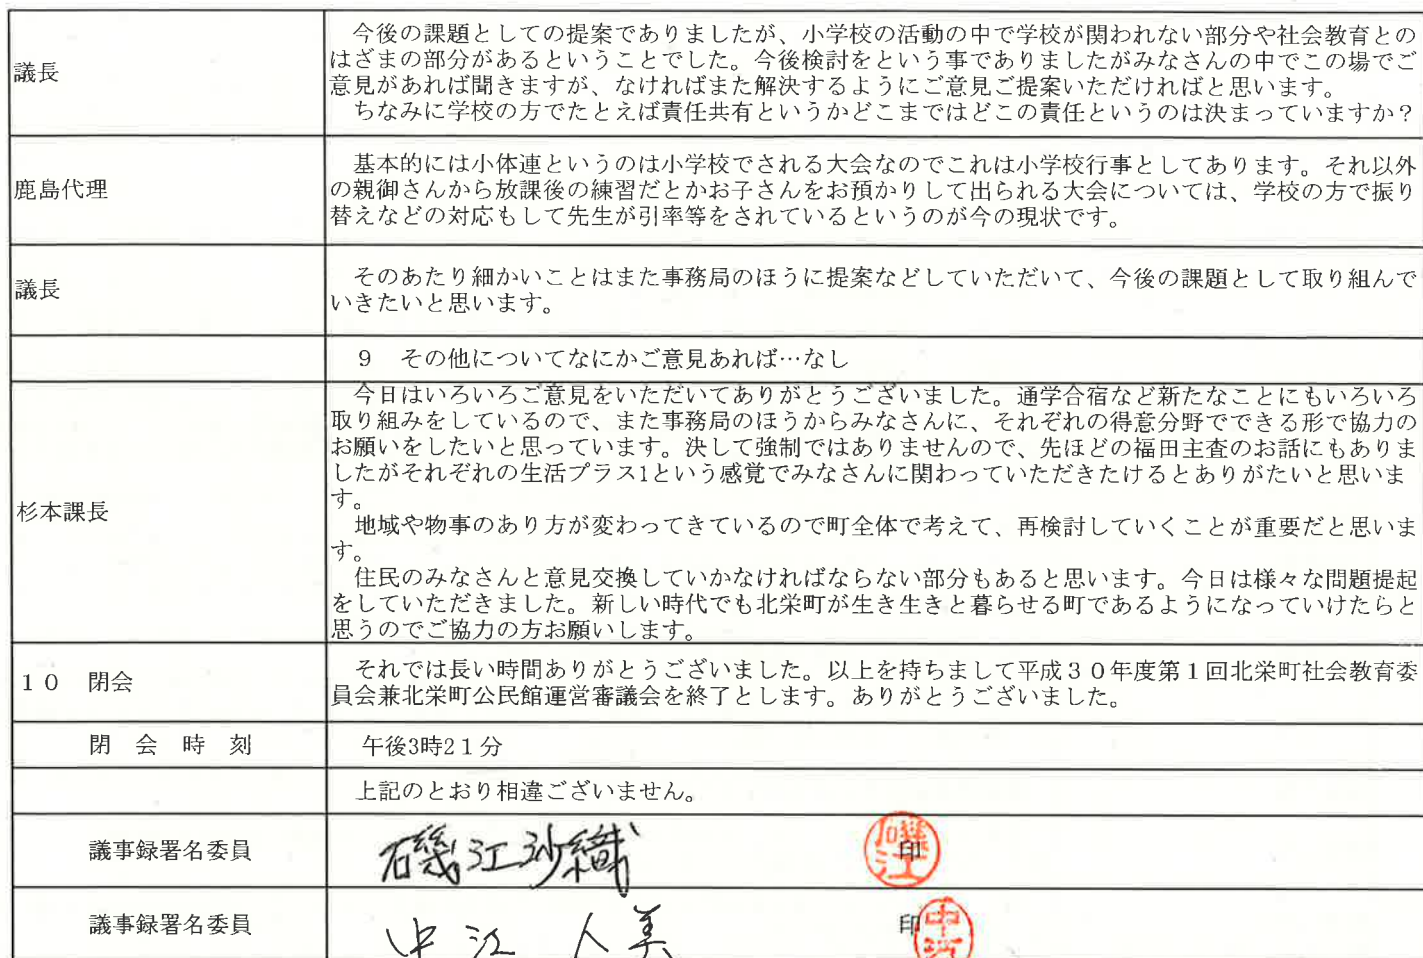 議長
今後の課題としての提案でありましたが、小学校の活動の中で学校が関われない部分や社会教育との
はざまの部分があるということでした。今後検討をという事でありましたがみなさんの中でこの場でご
意見があれば聞きますが、なければまた解決するようにご意見ご提案いただければと思います。
ちなみに学校の方でたとえば責任共有というかどこまではどこの責任というのは決まっていますか？
鹿島代理
基本的には小体連というのは小学校でされる大会なのでこれは小学校行事としてあります。それ以外
の親御さんから放課後の練習だとかお子さんをお預かりして出られる大会については、学校の方で振り
替えなどの対応もして先生が引率等をされているというのが今の現状です。
議長
そのあたり細かいことはまた事務局のほうに提案などしていただいて、今後の課題として取り組んで
いきたいと思います。
９　その他についてなにかご意見あれば…なし
杉本課長
今日はいろいろご意見をいただいてありがとうございました。通学合宿など新たなことにもいろいろ
取り組みをしているので、また事務局のほうからみなさんに、それぞれの得意分野でできる形で協力の
お願いをしたいと思っています。決して強制ではありませんので、先ほどの福田主査のお話にもありま
したがそれぞれの生活プラス1という感覚でみなさんに関わっていただきたけるとありがたいと思いま
す。
地域や物事のあり方が変わってきているので町全体で考えて、再検討していくことが重要だと思いま
す。
住民のみなさんと意見交換していかなければならない部分もあると思います。今日は様々な問題提起
をしていただきました。新しい時代でも北栄町が生き生きと暮らせる町であるようになっていけたらと
思うのでご協力の方お願いします。
１０　閉会
それでは長い時間ありがとうございました。以上を持ちまして平成３０年度第１回北栄町社会教育委
員会兼北栄町公民館運営審議会を終了とします。ありがとうございました。
閉　会　時　刻
午後3時2１分
上記のとおり相違ございません。
議事録署名委員
磯江沙織
印
磯江
議事録署名委員
中江　人美
印
中江